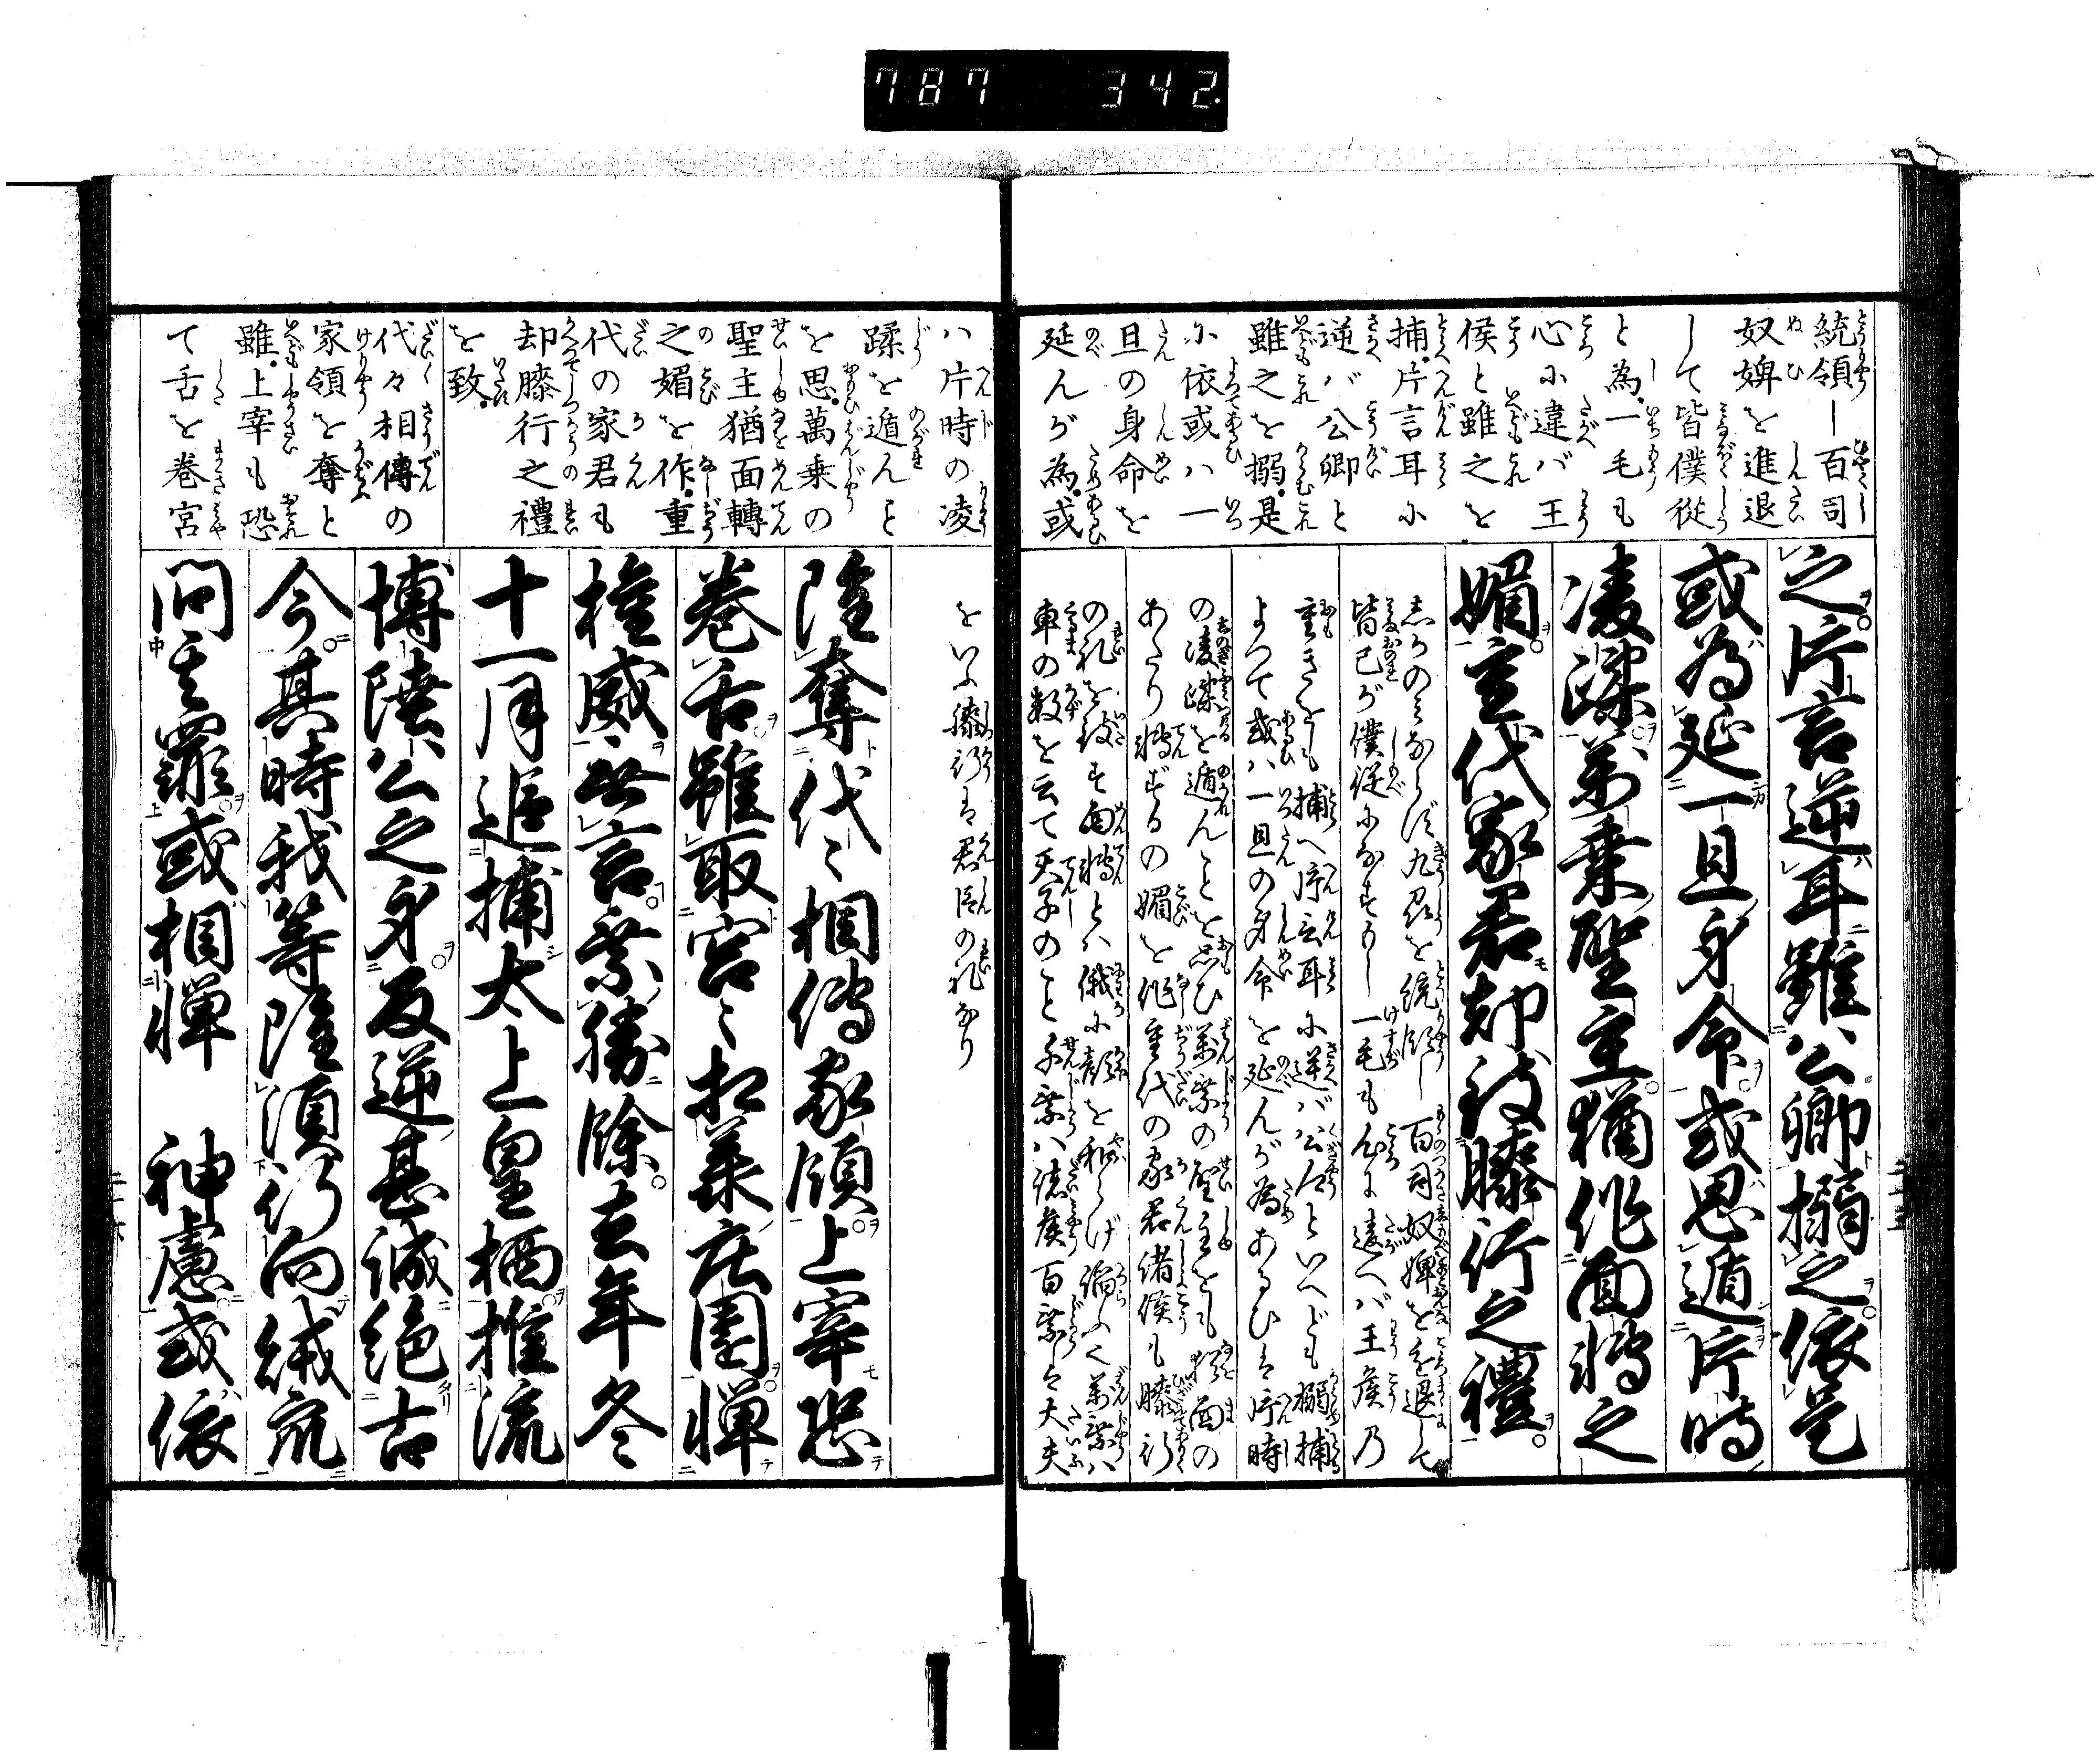 787 342
統領し百司
奴婢を進退
して皆僕従
と為。一毛も
心に違バ王
侯と雖之を
捕。片言耳に
逆バ公卿と
雖之を搦。是
に依或ハ一
旦の身命を
延んが為。或
之片言逆耳雖公卿搦之依是
或為延一旦身命或思遁片時
凌蹂萬乗聖主猶作面轉之
媚重代家君却致膝行之禮
皆己が僕従になすなり一毛も心に違へバ王侯乃
重きをも捕へ片言耳に逆バ公卿といへども搦捕
よつて或ハ一旦の身命を延んが為あるひは片時
の凌蹂を遁んことを思ひ萬乗の聖主をも猶面の
あたり轉ずるの媚を作重代の家君諸侯も膝行
の礼を致す面轉とハ俄に顔を和らげ諂ふ也萬乗ハ
車の数を云て天子のこと千乗ハ諸侯百乗は大夫
ハ片時の凌
蹂を遁んと
を思。萬乗の
聖主猶面轉
之媚を作。重
代の家君も
却膝行之禮
を致。
代々相傳の
家領を奪と
雖。上宰も恐
て舌を巻宮
をいふ膝行は君臣の礼なり
雖奪代〻相傳家領上宰恐
巻舌雖取宮〻相羕庄園憚
權威無言乗勝餘去年冬
十一月追捕太上皇栖推流
博陸公之身反逆甚誠絶古
今其時我等雖須行向賊衆
問其罪或相憚 神慮或依